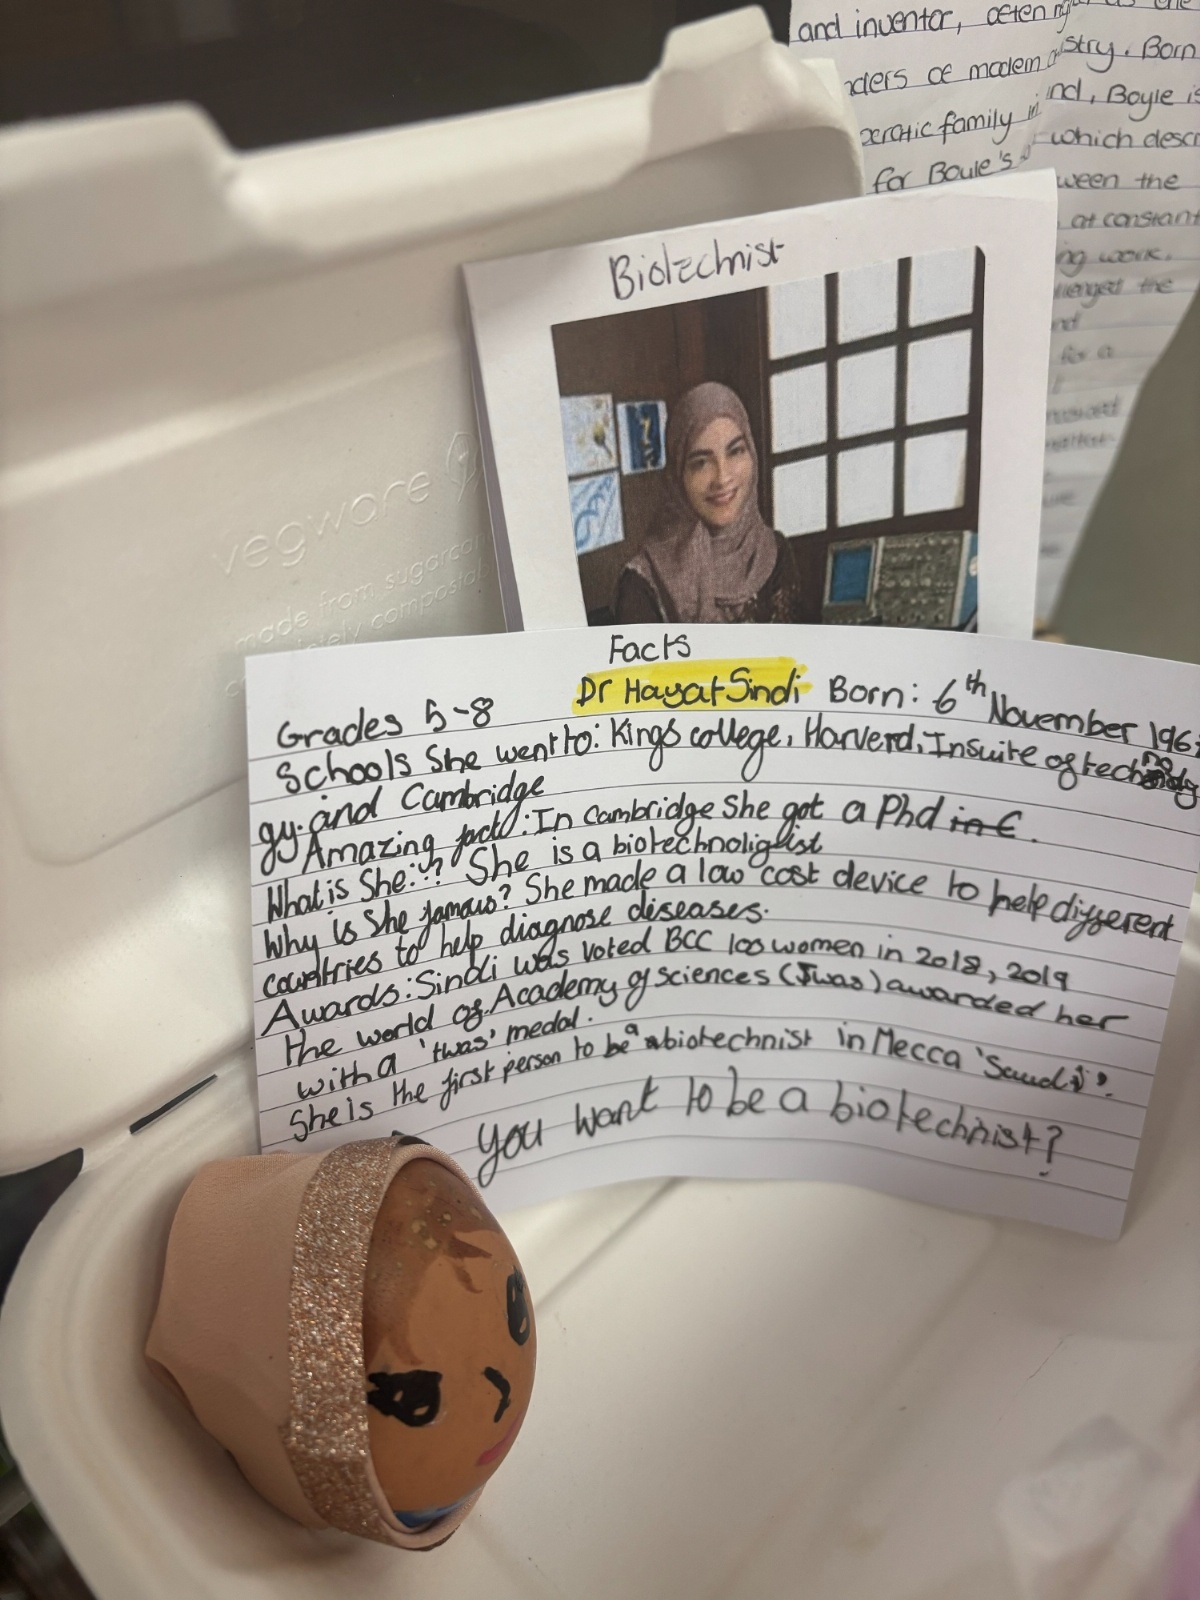 and inventor,
of modern
stry. Born
nd, Boyle is
family in
which descr
for Boyle's
ween the
at constant
ng work.
llenged the
nd
for a
Biotechnist
vegware
made from sugarcan
completely compostab
Facts
Dr Hayat Sindi Born: 6th November 196
Grades 5-8
Schools She went to: Kings college, Harverd, Insuite of techno
gy. and Cambridge
Amazing fact: In Cambridge She got a Phd in C.
What is She:? She is a biotechnoligist
Why is She famous? She made a low cost device to help different
countries to help diagnose diseases.
Awards: Sindi was voted BCC 100 women in 2018, 2019
the world of Academy of sciences (Twas) awarded her
with a 'twas' medal.
She is the first person to be a biotechnist in Mecca 'Saudi'.
You want to be a biotechnist?